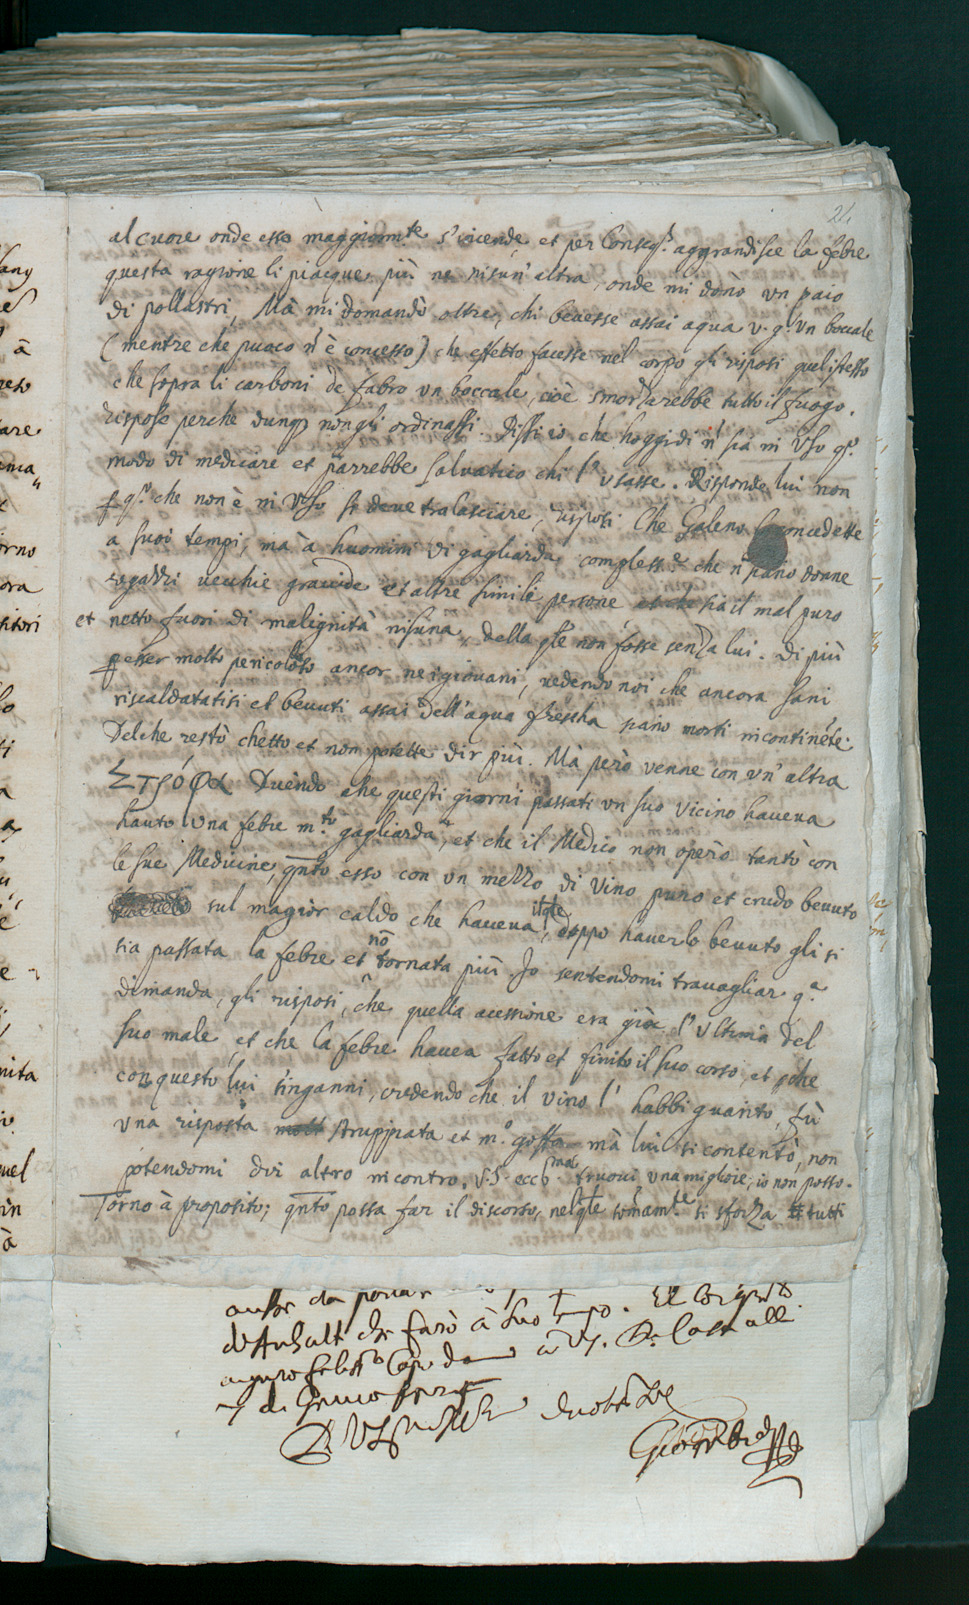 21.
al cuore onde esso maggiormte s'incende et per Conseqa. aggrandisce la febre
questa ragione li piacque più ne nisun' altra, onde mi donò vn paio
di pollastri, Mà mi domandò oltre, chi beuesse assai aqua v. g. Vn boccale
(mentre che puoco nō è concesso) che effetto facesse nel corpo gli risposi quell'istesso
che sopra li carboni de fabro vn boccale, cioè smorzarebbe tutto il fuogo.
rispose perche dunqz non gli ordinassi. Dissi io che hoggidi nō sia in Vso qo.
modo di medicare et parrebbe saluatico chi l' vsasse. Risponde lui non
p qo. che non è in Vso si deue tralasciare, risposi Che Galeno concedette
a suoi tempi, ma à huomini di gagliarda complesse. che nō siano donne
regazzi uecchie grauide et altre simile persone sia il mal puro
et netto fuori di malignità nisuna, della qle non fosse senza lui. Di più
p esser molto pericoloso ancor nei giouani, uedendo noi che ancora sani
riscaldatatisi et beuuti assai dell'aqua fresscha siano morti incontinēte.
Del che restò chetto et non potette dir più. Mà però venne con vn' altra
Στρόφα Dicendo che questi giorni passati vn suo vicino haueua
hauto una febre mto. gagliarda, et che il Medico non operò tanto con
le sue Medicine, qnto esso con vn mezzo di Vino puro et crudo beuuto
sul magior caldo che haueua, ilqle doppo hauerlo beuuto gli si
sia passata la febre et nō tornata più. Io sentendomi trauagliar qa.
dimanda, gli risposi, che quella acessione era già l' Vltima del
suo male, et che la febre hauea fatto et finito il suo corso, et pche
con questo lui s'inganni, credendo che il vino l' habbi guarito, fù
vna risposta struppiata et mo. goffa mà lui si contentò, non
potendomi dir altro in contro. V. S. ecc. truoui una miglioie, io non posso.
Torno à proposito; qnto possa far il discorso, nel qle si sforza tutti
da portar
che farò à suo tempo. Et
à V. S.
di